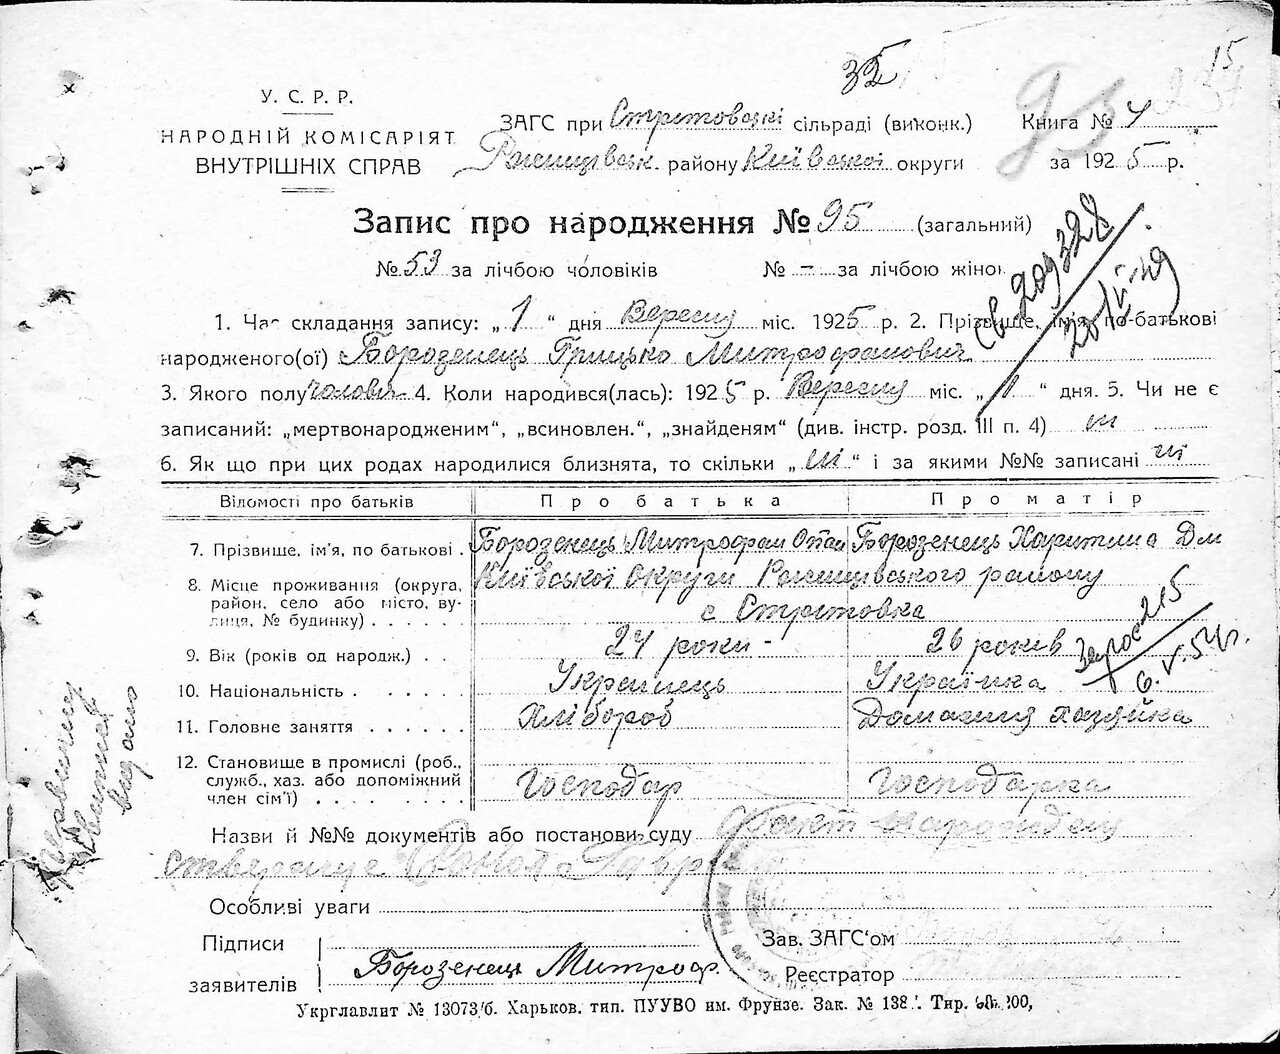 35
15
93
У. С. Р. Р.
НАРОДНІЙ КОМІСАРІЯТ
ВНУТРІШНІХ СПРАВ
ЗАГС при Стрітовські сільраді (виконк.)
Ржищівськ. району Київської округи
Книга № 4
за 1925 р.
Запис про народження № 95 (загальний)
№ 53 за лічбою чоловіків № – за лічбою жінок
св. 209328
20/V-49
1. Час складання запису: „ 1 “ дня Вересня міс. 1925 р. 2. Прізвище, ім'я, по-батькові
народженого(ої) Борозенець Грицько Митрофанович
3. Якого полу чоловіч 4. Коли народився(лась): 1925 р. Вересня міс. „ 1 “ дня. 5. Чи не є
записаний: „мертвонародженим“, „всиновлен.“, „знайденям“ (див. інстр. розд. III п. 4) ні
6. Як що при цих родах народилися близнята, то скільки „ ні “ і за якими №№ записані ні
Відомості про батьків Про батька Про матір
7. Прізвище, ім'я, по батькові . Борозенець Митрофан Борозенець Харитина Дм
8. Місце проживання (округа, район, село або місто, вулиця, № будинку) . . . . . Київської Округи Ржищівського району
с Стрітовка
9. Вік (років од народж.) . . 24 роки - 26 років
215
6.V.54г.
10. Національність . . . . . . Українець Українка
11. Головне заняття . . . . . . Хлібороб Домашня хазяйка
12. Становище в промислі (роб., служб., хаз. або допоміжний член сім'ї) . . . . . . . . Господар Господарка
Назви й №№ документів або постанови суду Факт народження
Особливі уваги
Підписи
заявителів
Борозенець Митроф.
Зав. ЗАГС'ом
Реєстратор
Укрглавлит № 13073/б. Харьков. тип. ПУУВО им. Фрунзе. Зак. № 138 Тир.